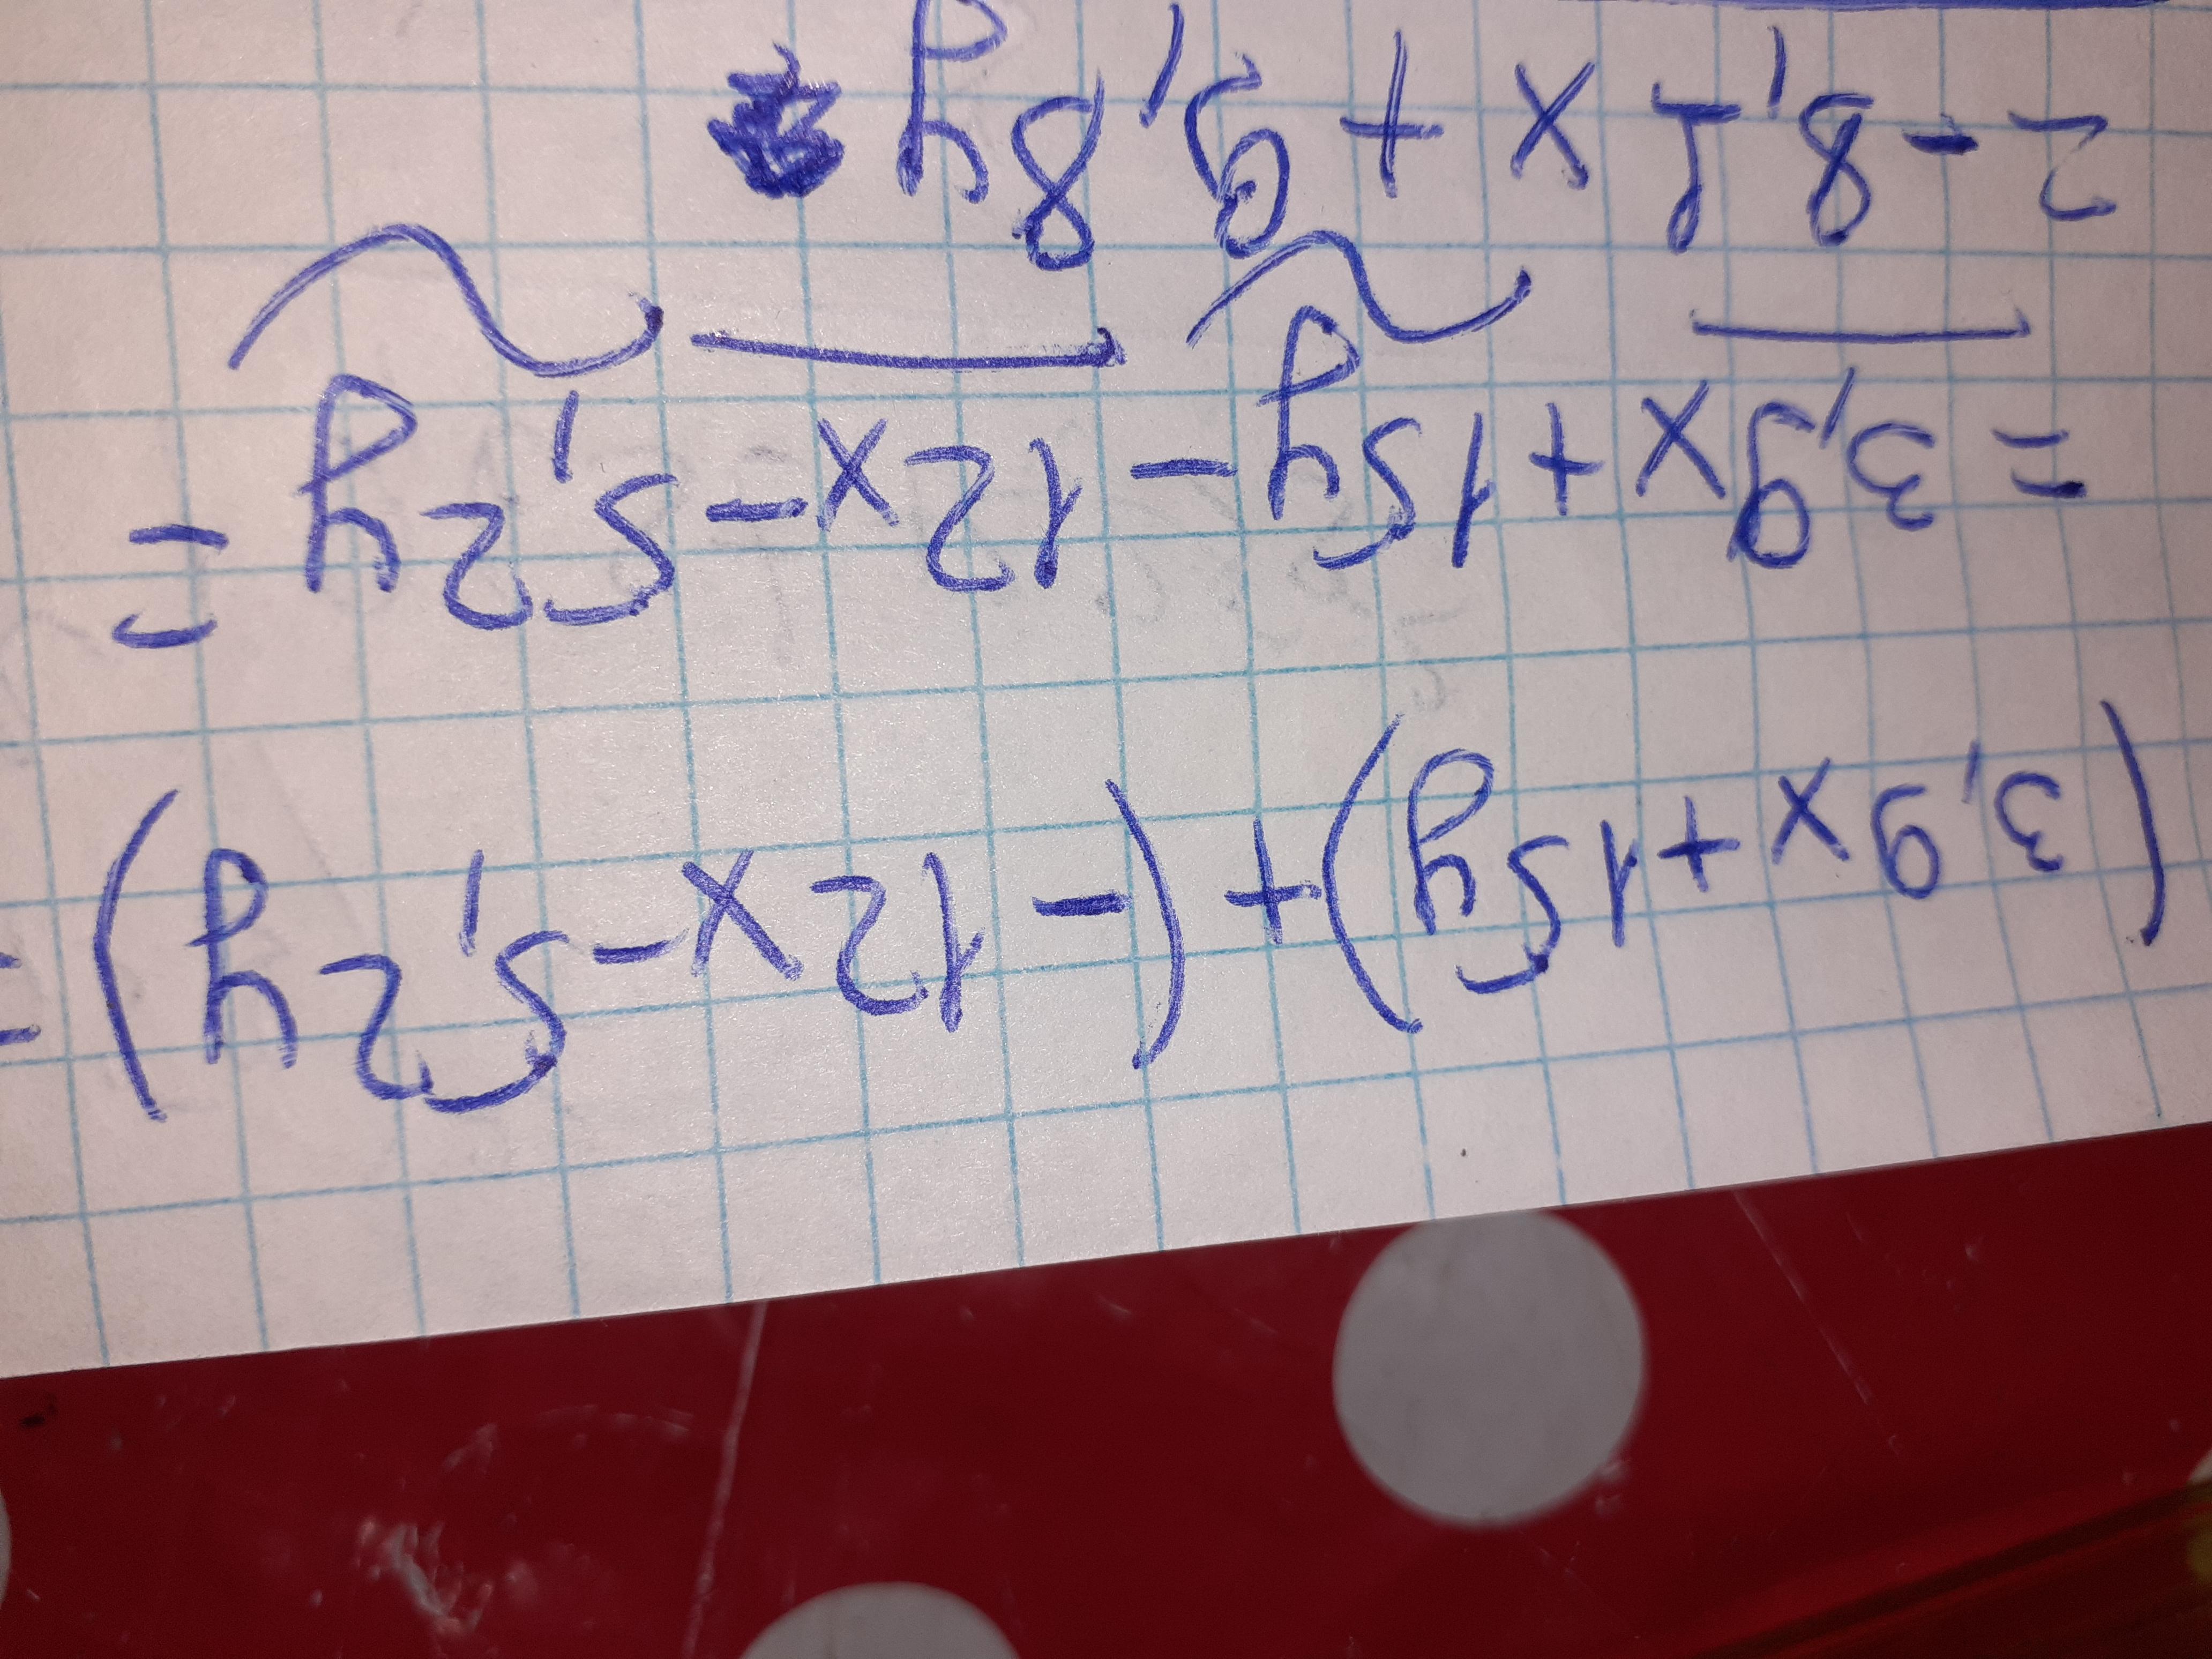 (3,9x+15y)+(-12x-5,2y)=
=3,9x+15y-12x-5,2y=
=-8,1x+9,8y